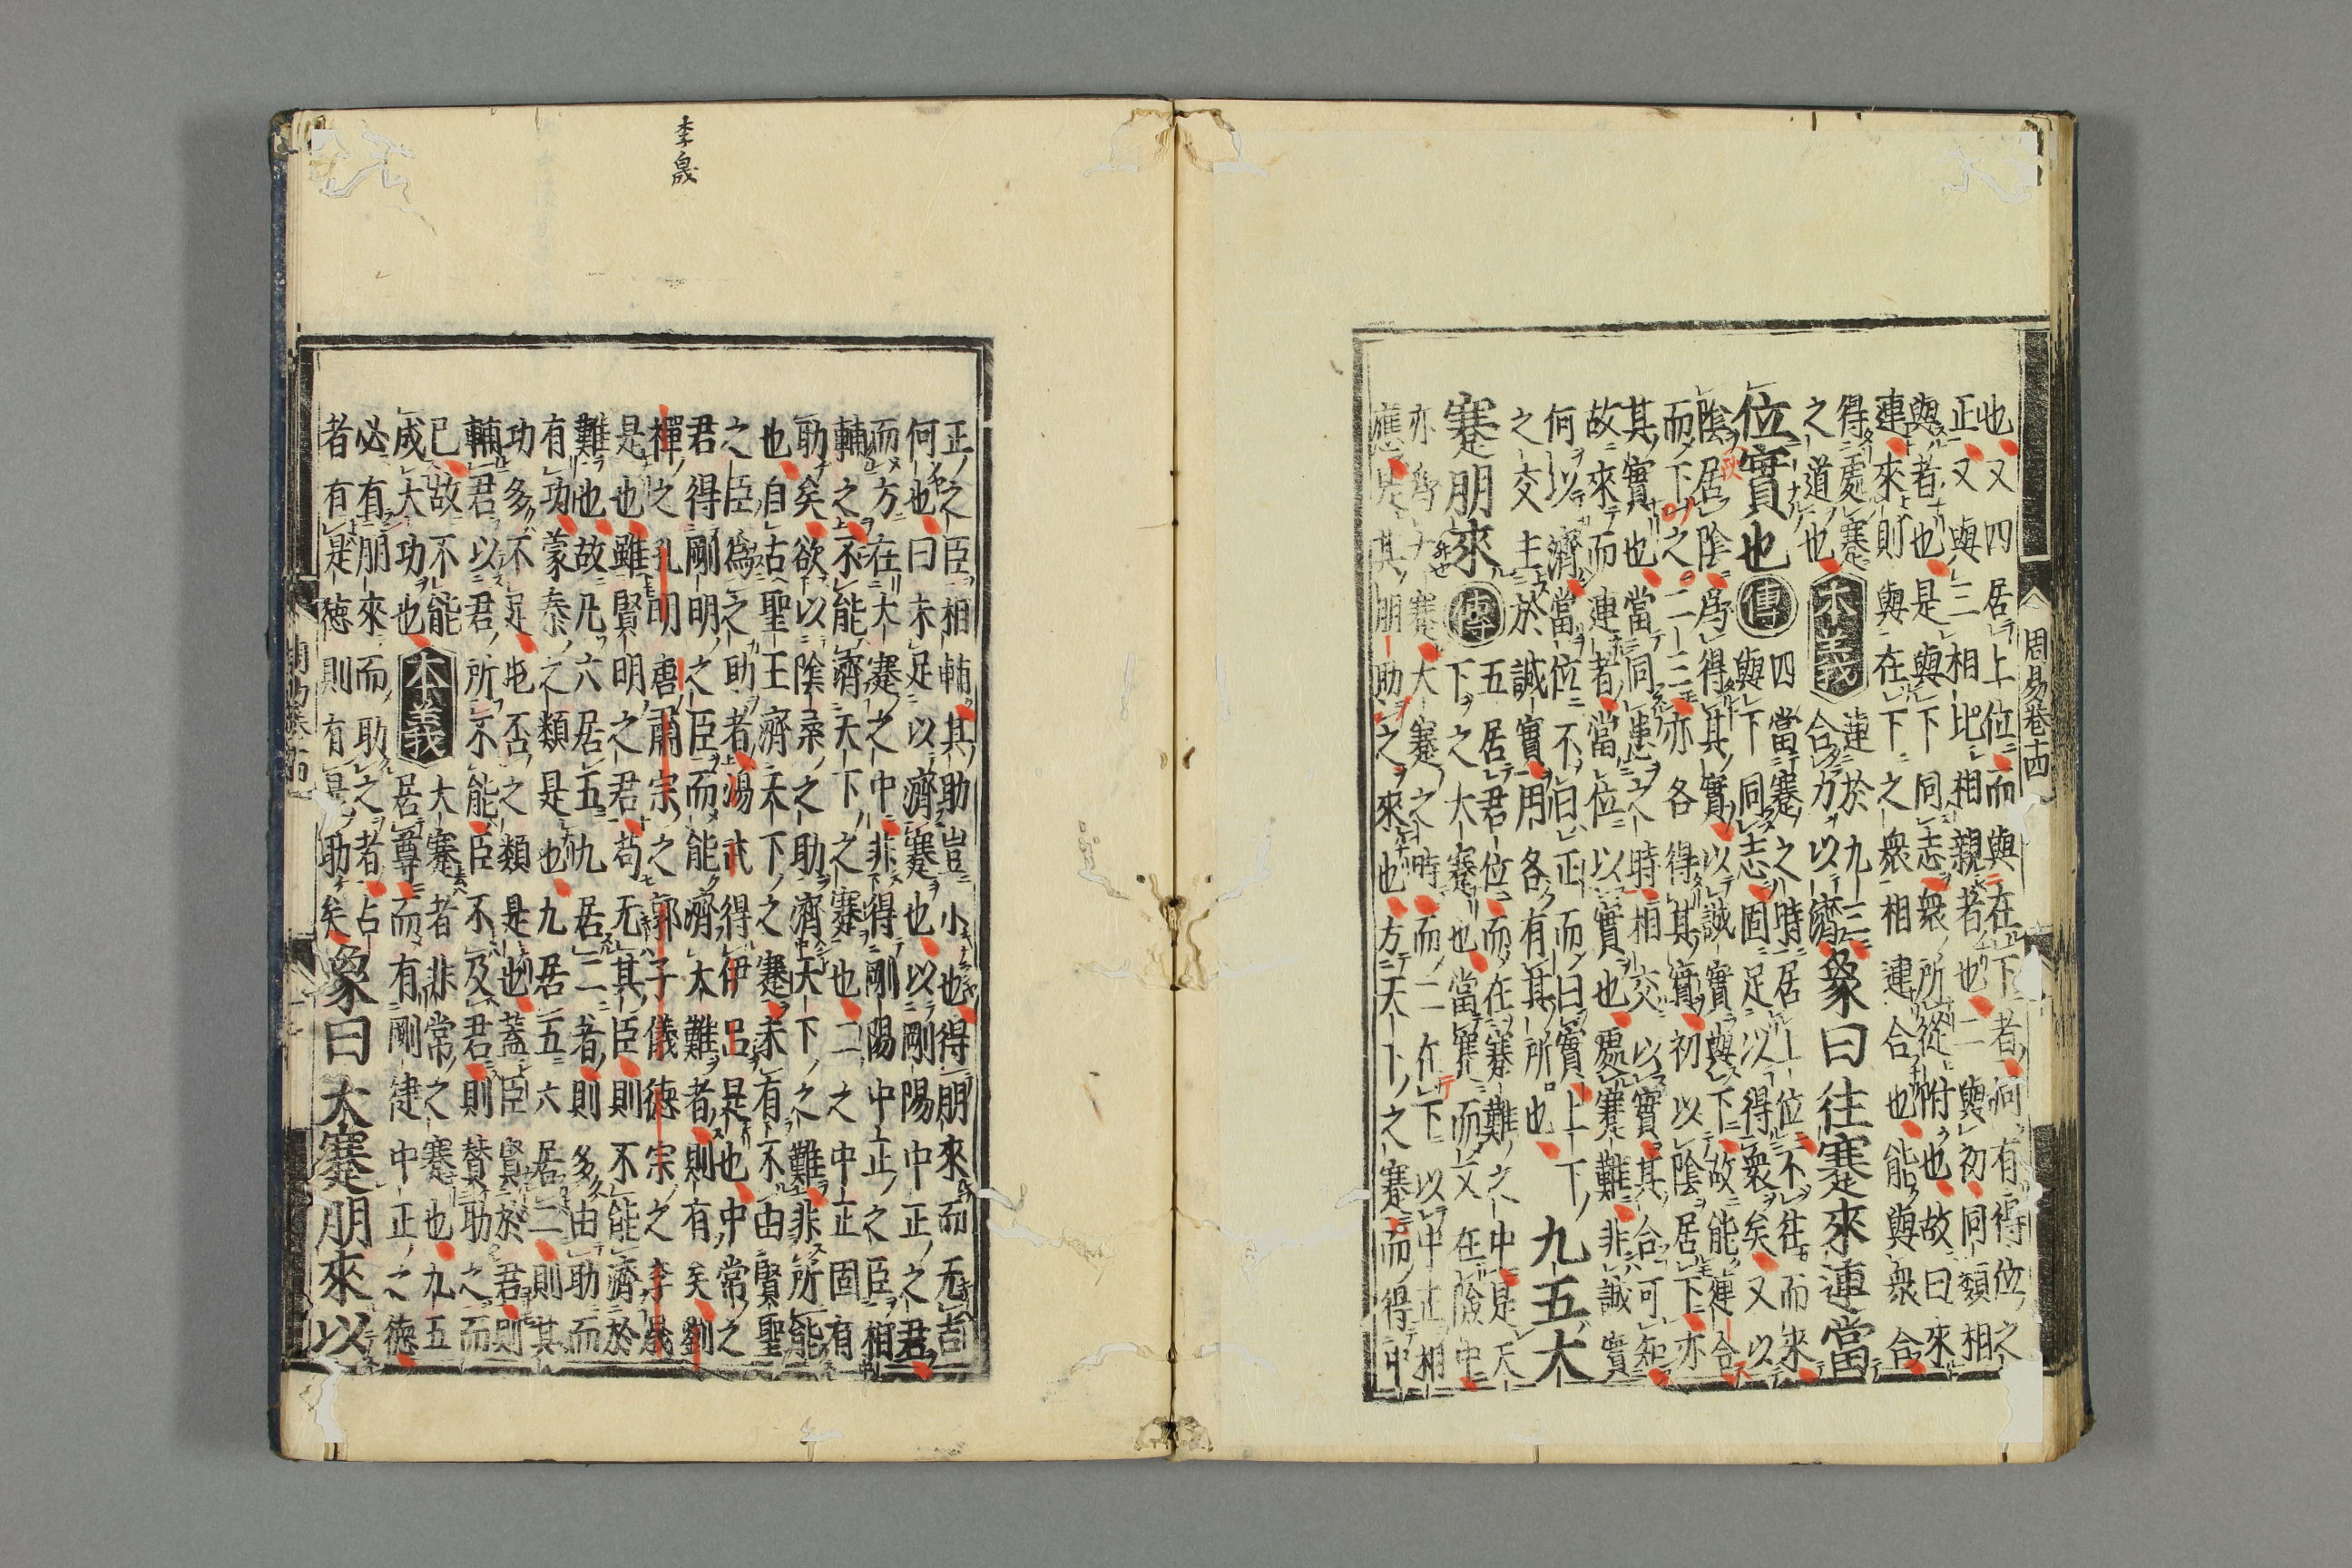 周易卷十四
也又四居上位而與在下者同有得位之
正又與三相比相親者也二與初同類相
與者也是與下同志衆所從附也故曰來
連來則與在下之衆相連合也能與衆合
得處蹇
之道也
本義
連於九三
合力以濟
象曰往蹇來連當
位實也
傳
四當蹇之時居上位不往而來
與下同志固足以得衆矣又以
陰居陰爲得其實以誠實與下故能連合
而下之二三亦各得其實初以陰居下亦
其實也當同患之時相交以實其合可知
故來而連者當位以實也處蹇難非誠實
何以濟當位不曰正而曰實上下
之交主於誠實用各有其所也
九五大
蹇朋來
傳
五居君位而在蹇難之中是天
下之大蹇也當蹇而又在險中
亦爲大蹇大蹇之時而二在下以中正相
應是其朋助之來也方天下之蹇而得中
李晟
正之臣相輔其助豈小也得朋來而无吉
何也曰未足以濟蹇也以剛陽中正之君
而方在大蹇之中非得剛陽中正之臣相
輔之不能濟天下之蹇也二之中正固有
助矣欲以陰柔之助濟天下之難非所能
也自古聖王濟天下之蹇未有不由賢聖
之臣爲之助者湯武得伊呂是也中常之
君得剛明之臣而能濟大難者則有矣劉
禪之孔明唐肅宗之郭子儀德宗之李晟
是也雖賢明之君苟无其臣則不能濟於
難也故凡六居五九居二者則多由助而
有功蒙泰之類是也九居五六居二則其
功多不足屯否之類是也蓋臣賢於君則
輔君以君所不能臣不及君則贊助之而
已故不能
成大功也
本義
大蹇者非常之蹇也九五
居尊而有剛健中正之德
必有朋來而助之者占
者有是德則有是助矣
象曰大蹇朋來以